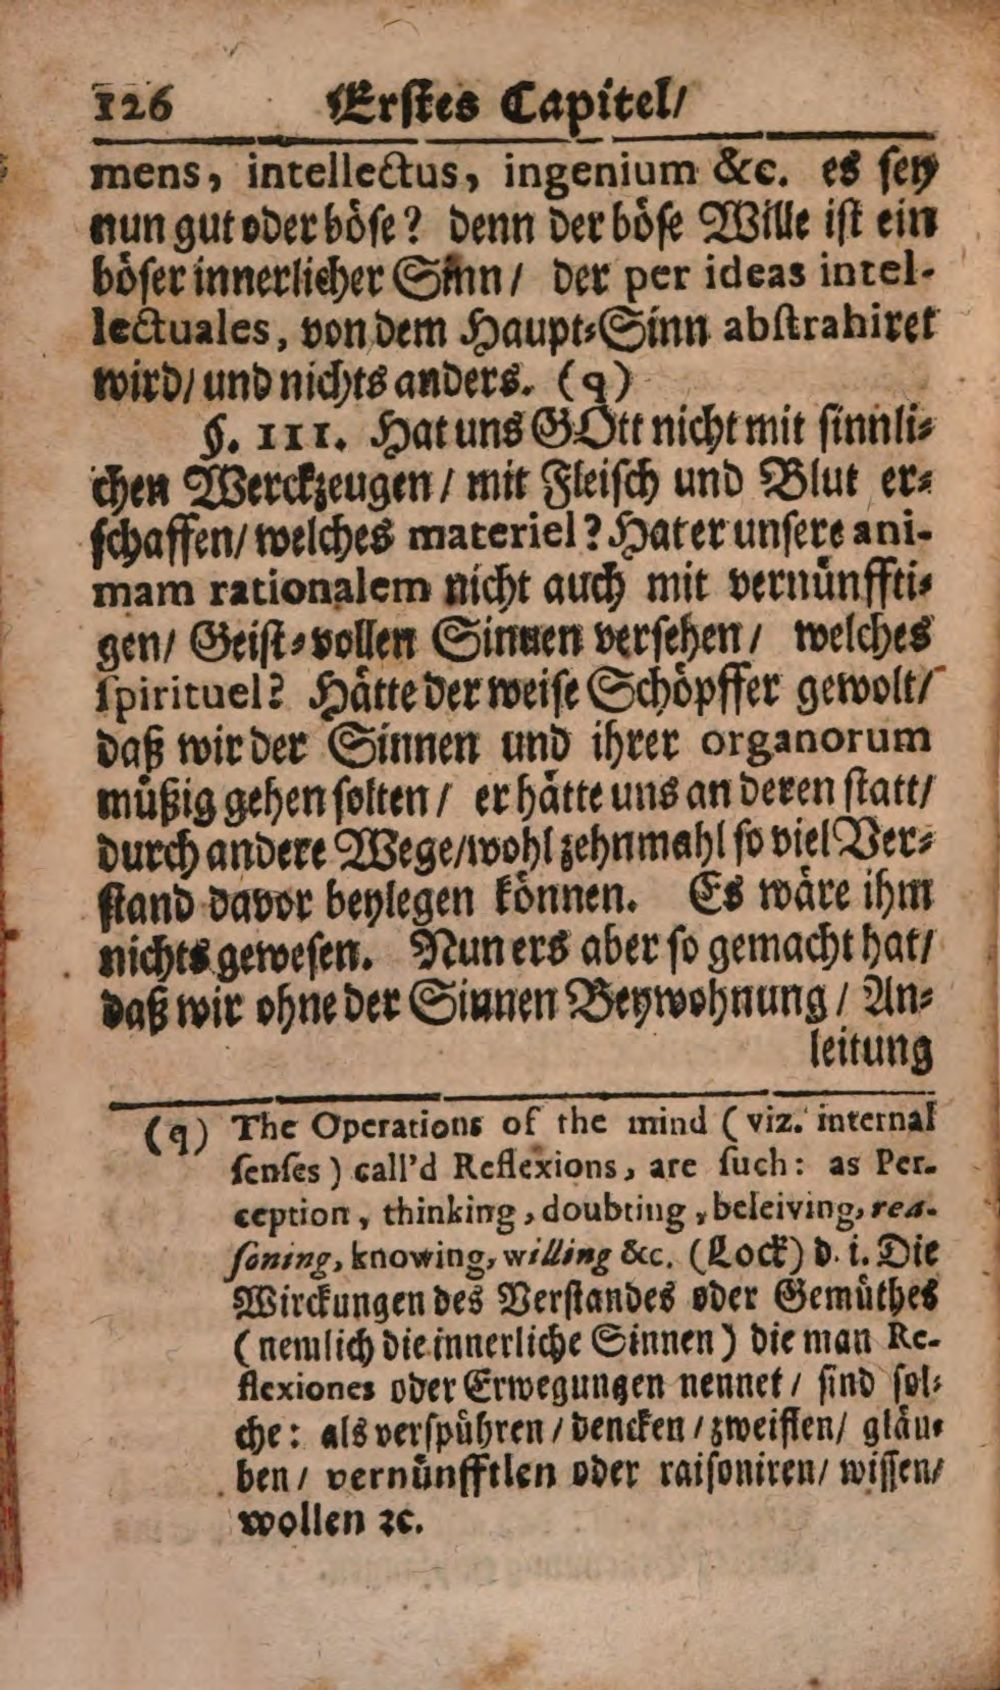 126 Erstes Capitel/
mens, intellectus, ingenium &c. es sey
nun gut oder böse? denn der böse Wille ist ein
böser innerlicher Sinn/ der per ideas intel-
lectuales, von dem Haupt-Sinn abstrahiret
wird/ und nichts anders. (q)
§. III. Hat uns GOtt nicht mit sinnli-
chen Werckzeugen/ mit Fleisch und Blut er-
schaffen/ welches materiel? Hat er unsere ani-
mam rationalem nicht auch mit vernünffti-
gen/ Geist-vollen Sinnen versehen/ welches
spirituel? Hätte der weise Schöpffer gewolt/
daß wir der Sinnen und ihrer organorum
müßig gehen solten/ er hätte uns an deren statt/
durch andere Wege/ wohl zehnmahl so viel Ver-
stand davor beylegen können. Es wäre ihm
nichts gewesen. Nun ers aber so gemacht hat/
daß wir ohne der Sinnen Beywohnung/ An-
leitung
(q) The Operations of the mind (viz. internal
senses) call'd Reflexions, are such: as Per-
ception, thinking, doubting, beleiving, rea-
soning, knowing, willing &c. (Lock) d. i. Die
Wirckungen des Verstandes oder Gemüthes
(nemlich die innerliche Sinnen) die man Re-
flexiones oder Erwegungen nennet/ sind sol-
che: als verspühren/ dencken/ zweiflen/ gläu-
ben/ vernünfftlen oder raisoniren/ wissen/
wollen ꝛc.